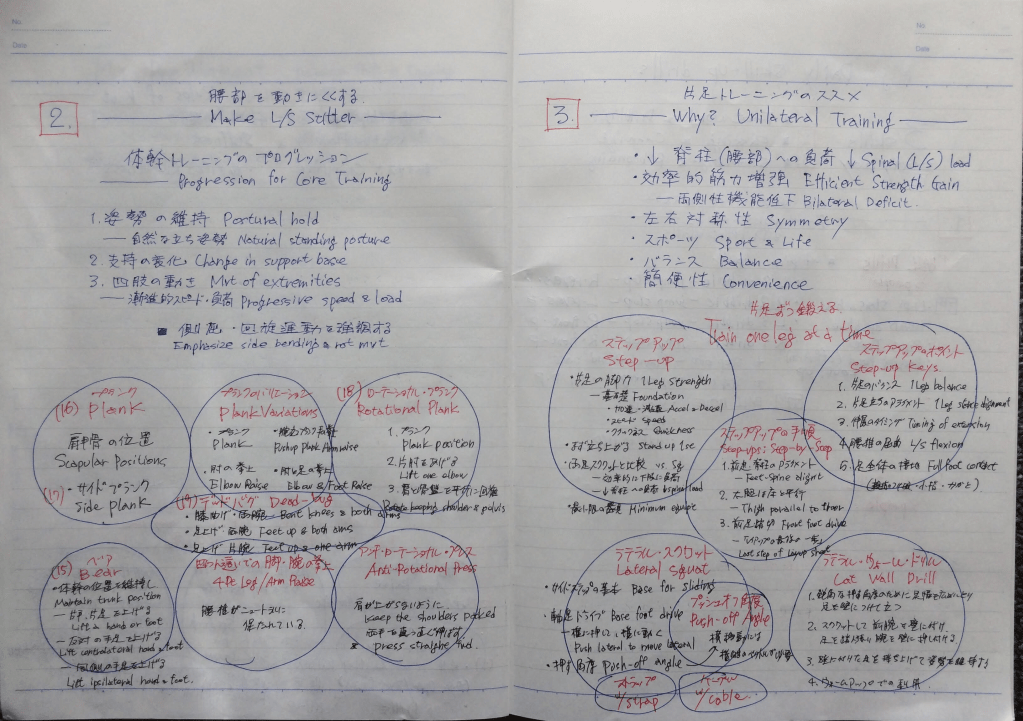 No.
Date
2.
腰部を動きにくくする
Make L/S Stiffer
体幹トレーニングのプログレッション
Progression for Core Training
1. 姿勢の維持 Postural hold
— 自然な立ち姿勢 Natural standing posture
2. 支持の変化 Change in support base
3. 四肢の動き Mvt of extremities
— 漸進的スピード・負荷 Progressive speed & load
■ 側屈・回旋運動を強調する
Emphasize side bending & rot mvt
(16) プランク
Plank
肩甲骨の位置
Scapular Positions
(17)・サイドプランク
Side plank
プランクのバリエーション
Plank Variations
・プランク
Plank
・肘の挙上
Elbow Raise
Pushup Plank Arm raise
・肘と足の挙上
Elbow & Foot Raise
(18) ローテーショナル・プランク
Rotational Plank
1. プランク
Plank position
2. 片肘をあげる
Lift one elbow
3. 肩と骨盤を平行に回旋
Rotate keeping shoulder & pelvis
(19) デッドバグ Dead-bug
・膝曲げ・両腕 Bent knees & both arms
・足上げ・両腕 Feet up & both arms
・足上げ・片腕 Feet up & one arm
(15) ベア
Bear
・体幹の位置を維持し
Maintain trunk position
— 片手、片足を上げる
Lift a hand or foot
— 反対の手足を上げる
Lift contralateral hand & foot
— 同側の手足を上げる
Lift ipsilateral hand & foot.
四つん這いでの脚・腕の挙上
4 Pt Leg/Arm Raise
腰椎がニュートラルに
保たれている.
アンチ・ローテーショナル・プレス
Anti-Rotational Press
肩が上がらないように
Keep the shoulders packed
両手を真っ直ぐ伸ばす
& press straight
No.
Date
3.
片足トレーニングのススメ
Why? Unilateral Training
・↓ 脊柱(腰部)への負荷 ↓ Spinal (L/S) load
・効率的筋力増強 Efficient Strength Gain
— 両側性機能低下 Bilateral Deficit.
・左右対称性 Symmetry
・スポーツ Sport & Life
・バランス Balance
・簡便性 Convenience
片足ずつ鍛える
Train one leg at a time
ステップアップ
Step-up
・片足の脚力 1 Leg strength
— 基礎 Foundation
・加速・減速 Accel & Decel
・スピード Speed
・クイックネス Quickness
・まず立ち上がる Stand up 1st
・両足スクワットと比較 vs. Sq
— 効率的に下肢に負荷
↓ 脊柱への負荷 ↓ spinal load
・最小限の器具 Minimum equipt
ステップアップのポイント
Step-up Keys
1. 片足のバランス 1 Leg balance
2. 片足立ちのアライメント 1 Leg stance alignment
3. 伸展のタイミング Timing of extension
4. 腰椎の屈曲 L/S flexion
5. 足全体の接地 Full foot contact
ステップアップの手順
Step-ups: Step-by-Step
1. 前足、脊柱のアライメント
— Feet-spine alignt
2. 大腿は床と平行
— Thigh parallel to floor
3. 前足接地 Front foot drive
Last step of Layup shoot
ラテラル・スクワット
Lateral Squat
・サイドステップの基本 Base for sliding
・軸足ドライブ Base foot drive
— 横に押して、横に動く
Push lateral to move lateral
・押す角度 push-off angle
プッシュオフ角度
Push-off Angle
横移動には
ストラップ
w/strap
ケーブル
w/ cable
ラテラル・ウォール・ドリル
Lat Wall Drill
足を壁につけて立つ
2. スクワットして前腕を壁に付け
足を踏ん張り腕を壁に押し付ける
3. 壁に付けた足を持ち上げて姿勢を維持する
4. ウォームアップでの利用.